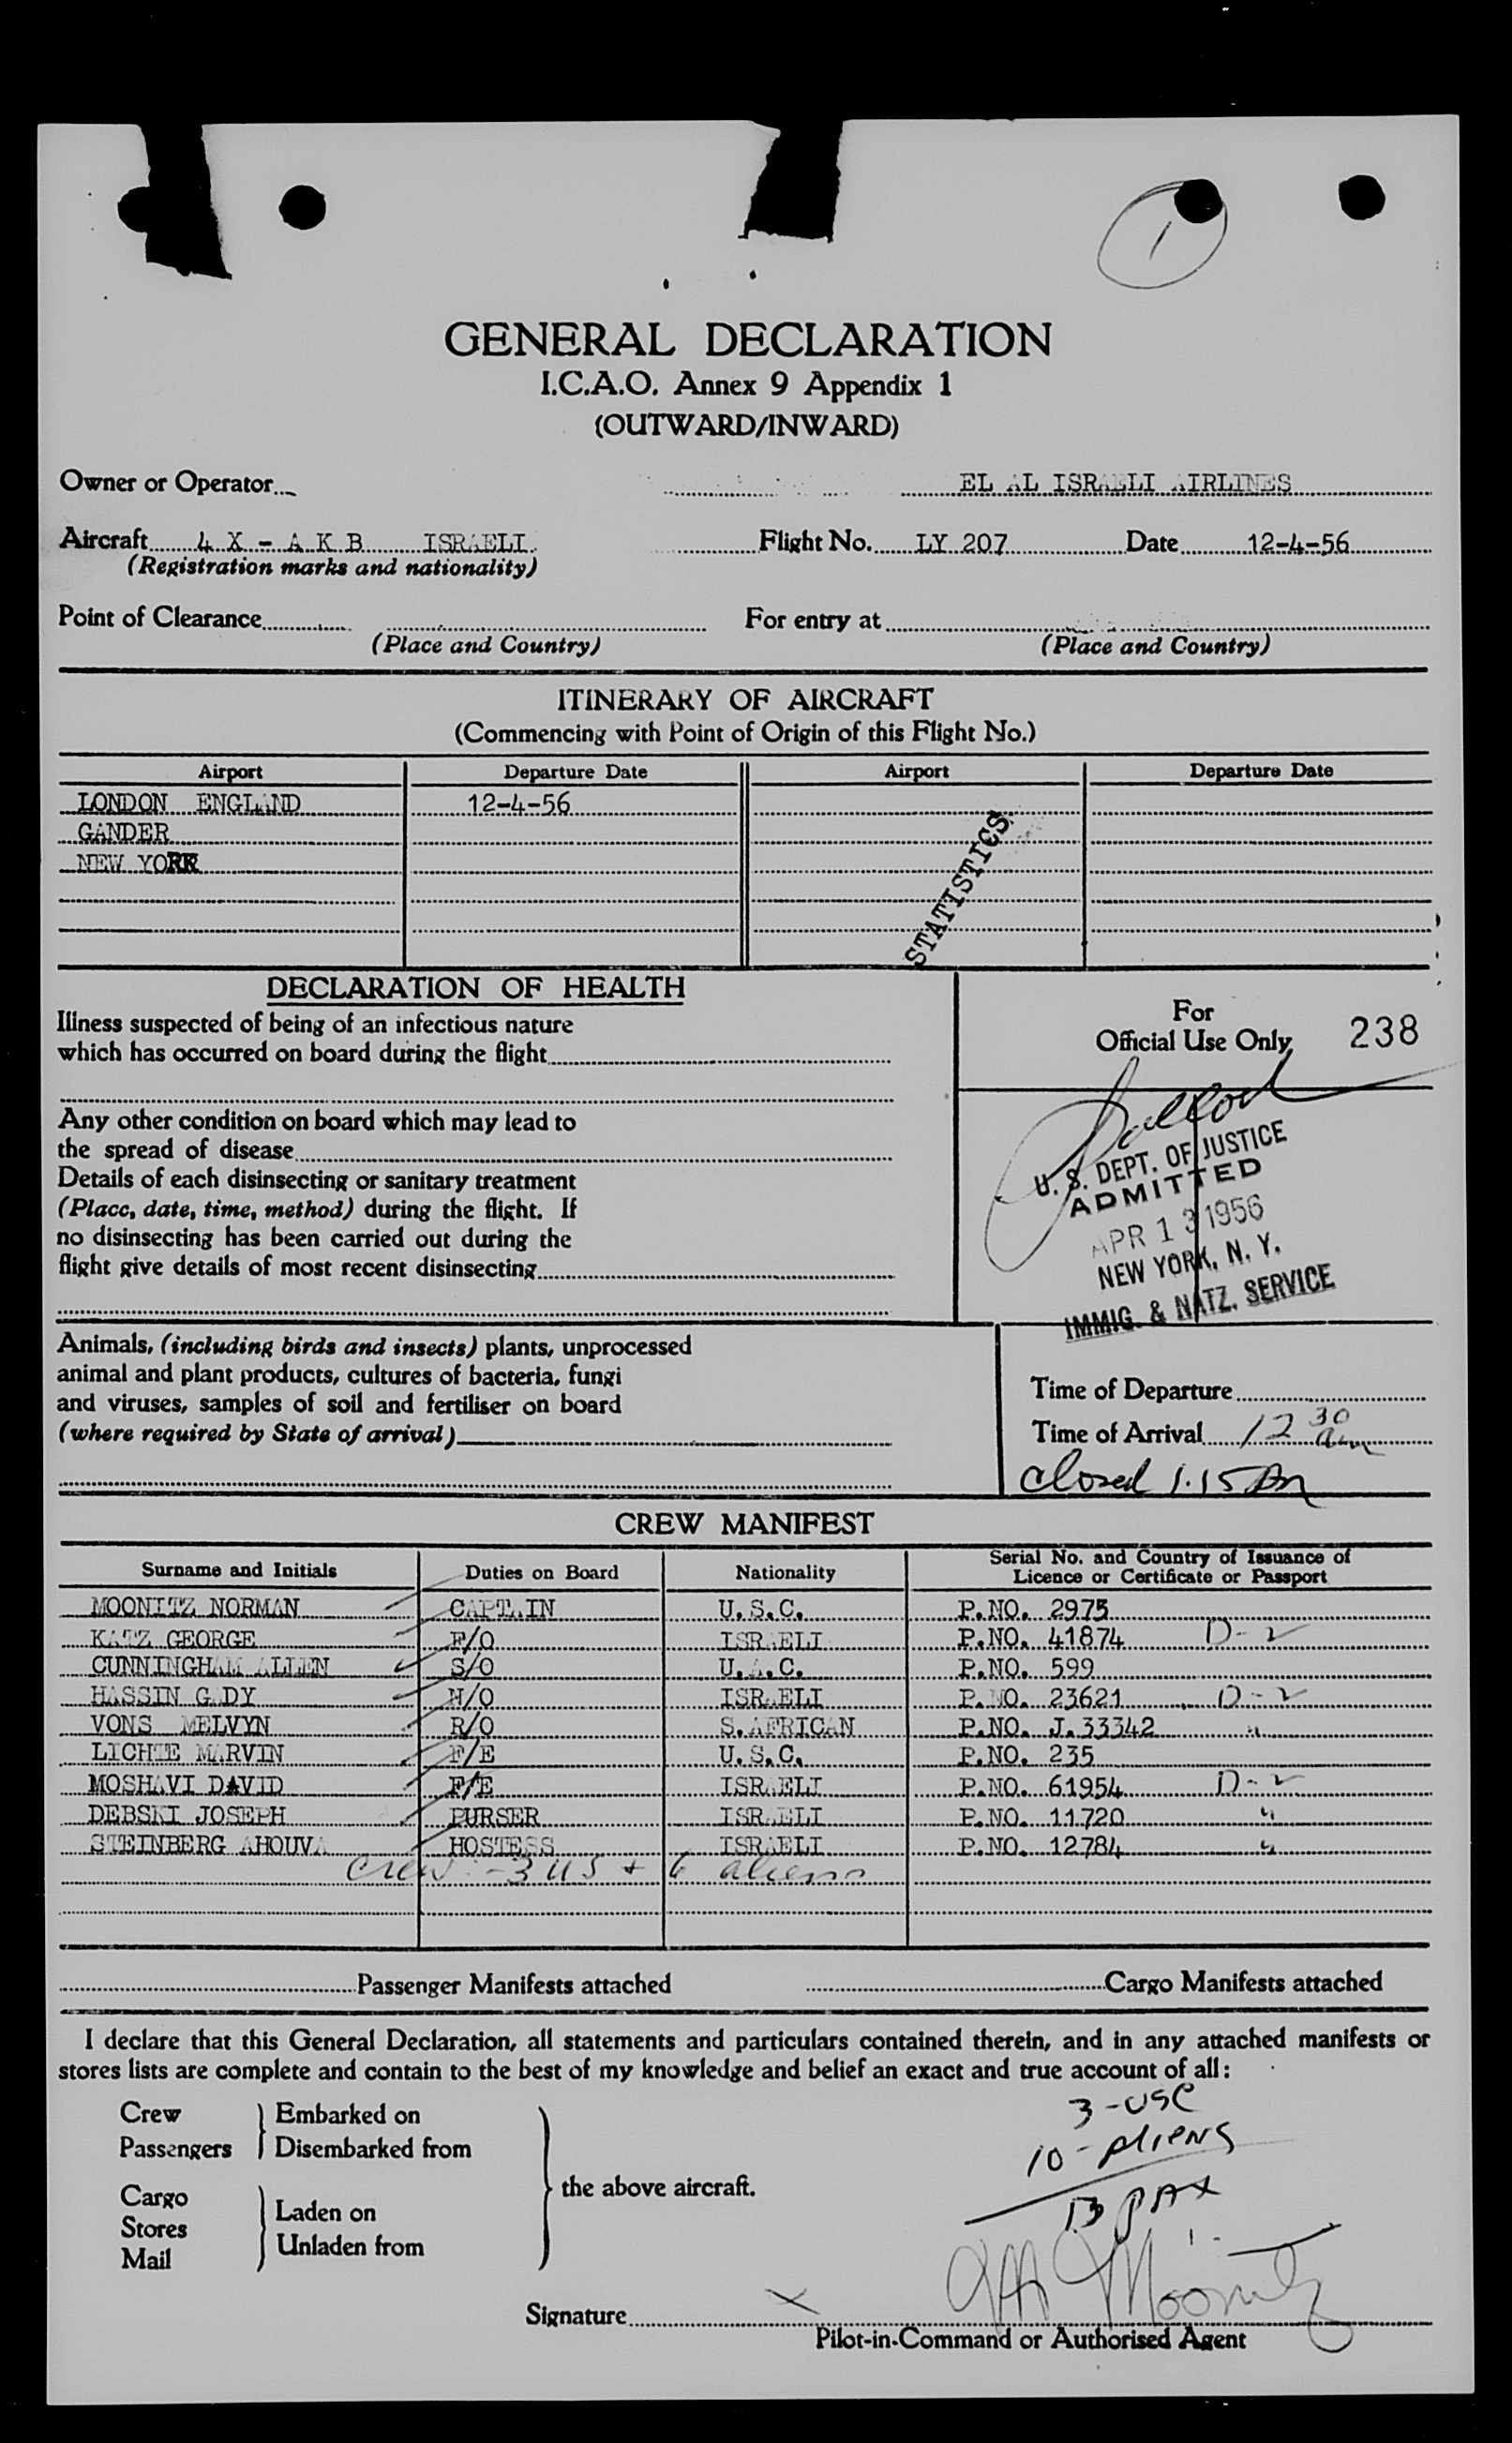 1
GENERAL DECLARATION
I.C.A.O. Annex 9 Appendix 1
(OUTWARD/INWARD)
Owner or Operator EL AL ISRAELI AIRLINES
Aircraft 4 X - A K B ISRAELI Flight No. LY 207 Date 12-4-56
(Registration marks and nationality)
Point of Clearance For entry at
(Place and Country) (Place and Country)
ITINERARY OF AIRCRAFT
(Commencing with Point of Origin of this Flight No.)
Airport Departure Date Airport Departure Date
LONDON ENGLAND 12-4-56
GANDER
NEW YORK
STATISTICS
DECLARATION OF HEALTH
Illness suspected of being of an infectious nature
which has occurred on board during the flight
For
Official Use Only 238
Any other condition on board which may lead to
the spread of disease
Details of each disinsecting or sanitary treatment
(Place, date, time, method) during the flight. If
no disinsecting has been carried out during the
flight give details of most recent disinsecting
U. S. DEPT. OF JUSTICE
ADMITTED
APR 13 1956
NEW YORK, N. Y.
IMMIG. & NATZ. SERVICE
Animals, (including birds and insects) plants, unprocessed
animal and plant products, cultures of bacteria, fungi
and viruses, samples of soil and fertiliser on board
(where required by State of arrival)
Time of Departure
Time of Arrival 12 30 am
closed 1.15 Am
CREW MANIFEST
Surname and Initials Duties on Board Nationality Serial No. and Country of Issuance of
Licence or Certificate or Passport
MOONITZ NORMAN CAPTAIN U.S.C. P.NO. 2975
KATZ GEORGE F/O ISRAELI P.NO. 41874 D-2
CUNNINGHAM ALLEN S/O U.S.C. P.NO. 599
HASSIN GADY N/O ISRAELI P.NO. 23621 D-2
VONS MELVYN R/O S.AFRICAN P.NO. J.33342 "
LICHTE MARVIN F/E U.S.C. P.NO. 235
MOSHAVI DAVID F/E ISRAELI P.NO. 61954 D-2
DEBSKI JOSEPH PURSER ISRAELI P.NO. 11720 "
STEINBERG AHOUVA HOSTESS ISRAELI P.NO. 12784 "
Crew - 3 US + 6 aliens
Passenger Manifests attached Cargo Manifests attached
I declare that this General Declaration, all statements and particulars contained therein, and in any attached manifests or
stores lists are complete and contain to the best of my knowledge and belief an exact and true account of all:
Crew Embarked on
Passengers Disembarked from
Cargo
Stores Laden on
Mail Unladen from
the above aircraft.
3-USC
10-Aliens
13 PAX
Signature X Moonitz
Pilot-in-Command or Authorised Agent